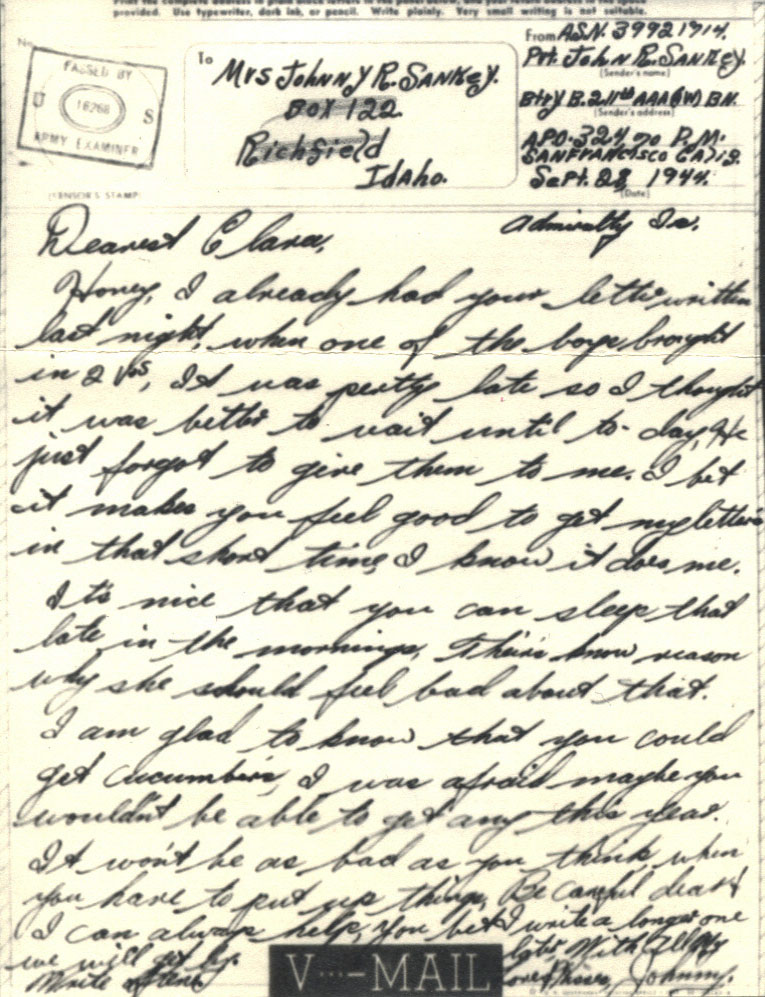 Print the complete address in plain block letters in the panel below, and your return address in the space
provided. Use typewriter, dark ink, or pencil. Write plainly. Very small writing is not suitable.
No.
PASSED BY
U 16266 S
ARMY EXAMINER
(CENSOR'S STAMP)
To
Mrs Johnny R. Sankey.
Box 122
Richfield
Idaho.
From ASN. 39921914.
Pvt. John R. Sankey.
(Sender's name)
Btry B. 211th AAA (W) BN.
(Sender's address)
APO. 324 % P.M.
SANFRANCISCO CALIS.
Sept. 28, 1944.
(Date)
Admiralty Is.
Dearest Clara,
Honey, I already had your letter written
last night, when one of the boys brought
in 2 Vs, It was pertty late so I thought
it was better to wait until to-day, He
just forgot to give them to me. I bet
it makes you feel good to get my letters
in that short time, I know it does me.
It's nice that you can sleep that
late in the mornings, Theirs know reason
why she should feel bad about that.
I am glad to know that you could
get cucumbers, I was afraid maybe you
wouldn't be able to get any this year.
It won't be as bad as you think, when
you have to put up things, Be careful dear &
I can always help, you bet I write a longer one
we will get by. later With All My
Write often Love & Kisses, Johnny.
V···—MAIL